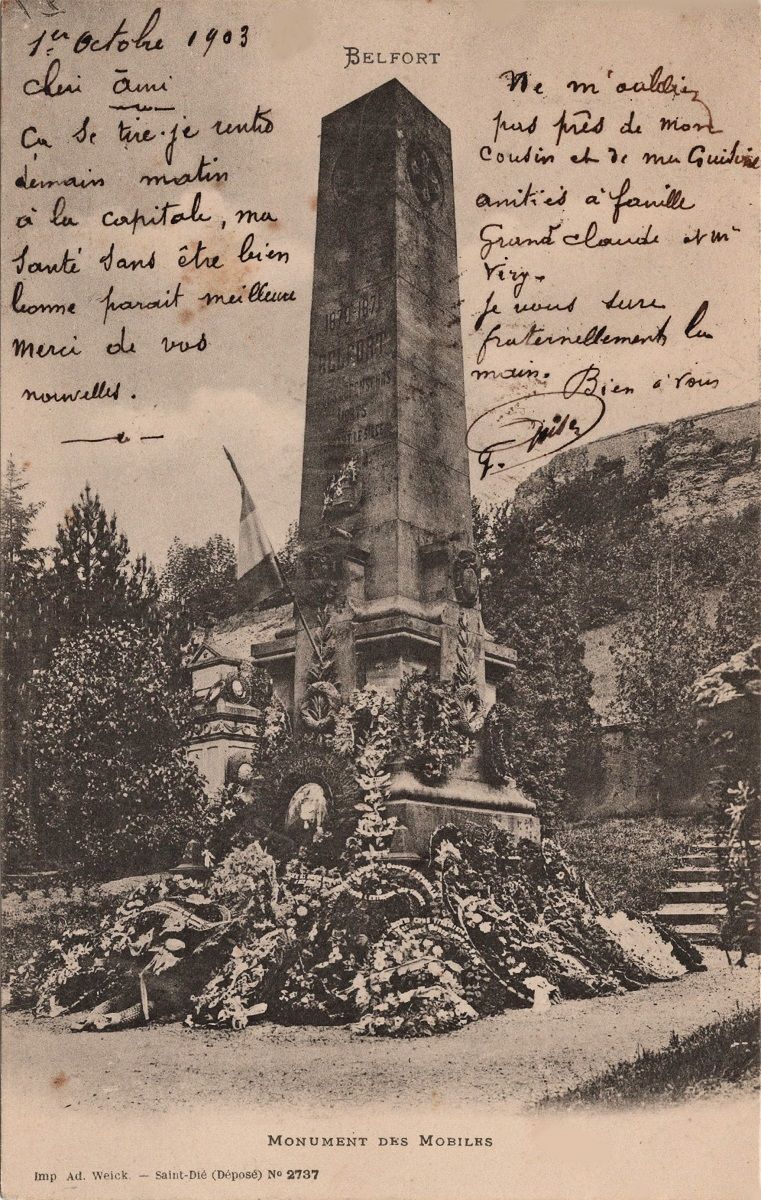 1er Octobre 1903
cheri ami
Ca Se tire. je rentre
demain matin
à la capitale, ma
Santé sans être bien
bonne parait meilleure
Merci de vos
nouvelles.
BELFORT
Ne m'oubliez
pas près de mon
cousin et de ma
amitiés à famille
Grand claude et Mr
Viry.
je vous serre
fraternellement la
main. Bien à vous
1870-1871
BELFORT
MORTS
MONUMENT DES MOBILES
Imp Ad. Weick. — Saint-Dié (Déposé) No 2737